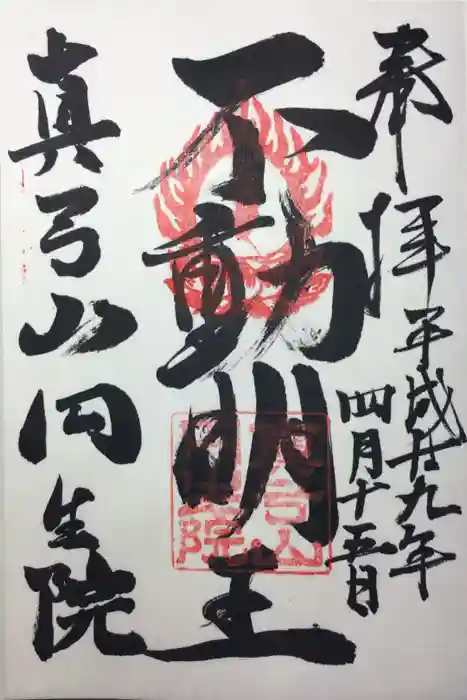 奉拝
平成廿九年
四月十五日
不動明王
真弓山円生院